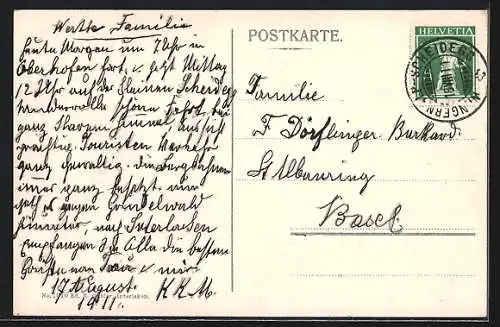 Werthe Familie
Heute Morgen um 7 Uhr in
Oberhofen fort & jetzt Mittag
12 Uhr auf der kleinen Scheideg
wundervolle schöne Fahrt bei
ganz Himmel Aussicht
prächtig Touristen Verkehr
ganz gewaltig. die Bergbahnen
imer ganz besetzt nun
geht es gegen Grindelwald
hinunter, nach Interlaken
Empfangen Sie Alle die besten
Grüße von Frau & mir
17 August K.K.M.
1911.
POSTKARTE.
HELVETIA
Familie
F. Dörflinger-Burkard.
St Albanring
Basel
Interlaken.